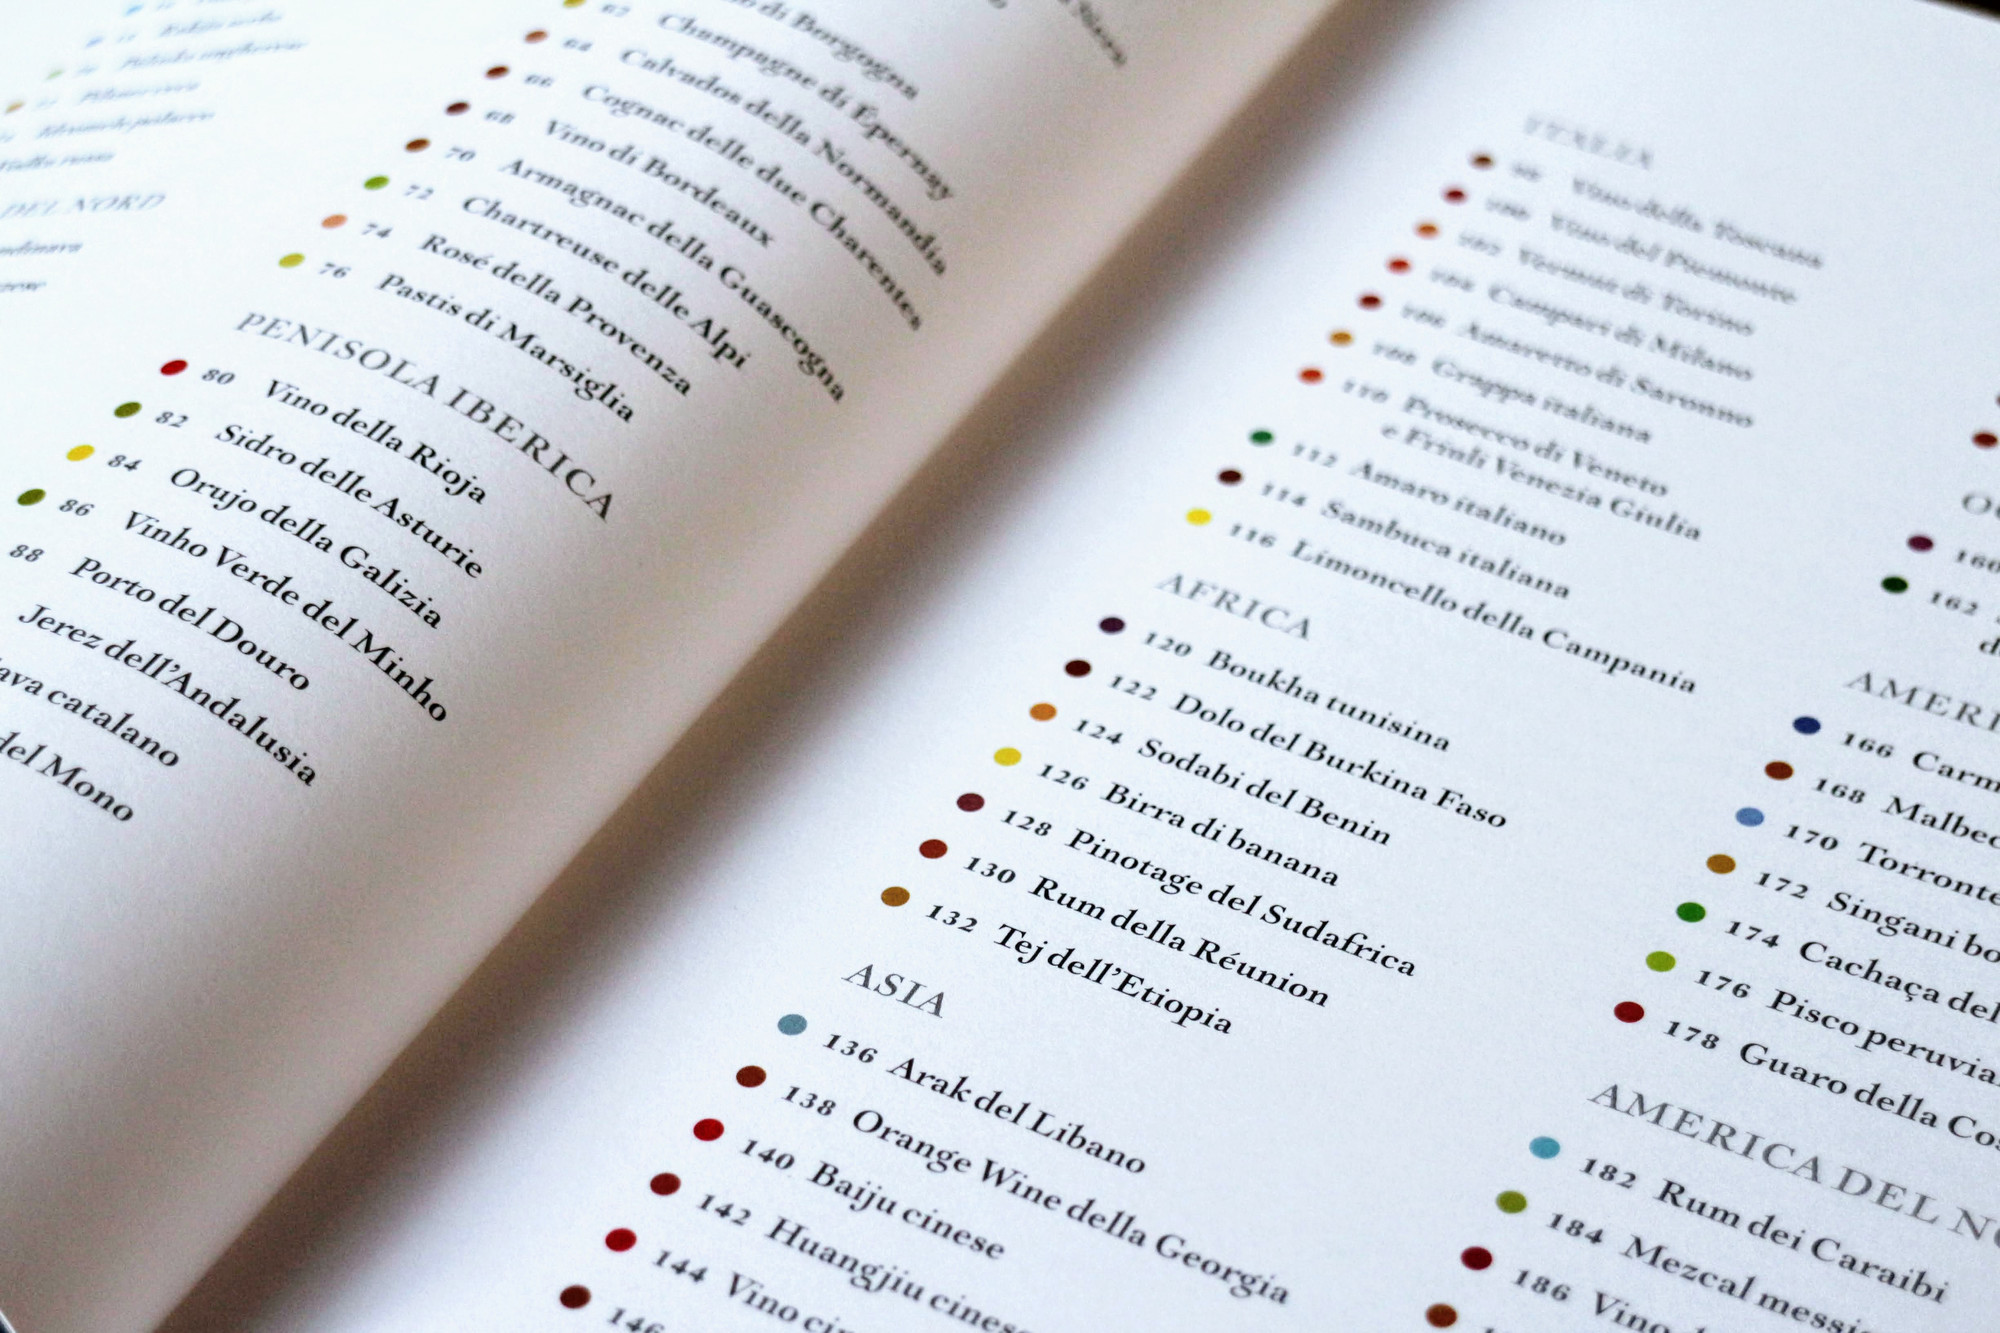 DEL NORD
di Borgogna
62 Champagne di Épernay
64 Calvados della Normandia
66 Cognac delle due Charentes
68 Vino di Bordeaux
70 Armagnac della Guascogna
72 Chartreuse delle Alpi
74 Rosé della Provenza
76 Pastis di Marsiglia
PENISOLA IBERICA
80 Vino della Rioja
82 Sidro delle Asturie
84 Orujo della Galizia
86 Vinho Verde del Minho
88 Porto del Douro
Jerez dell'Andalusia
catalano
del Mono
ITALIA
Vino della Toscana
Vino del Piemonte
Vermut di Torino
104 Campari di Milano
106 Amaretto di Saronno
108 Grappa italiana
110 Prosecco di Veneto
e Friuli Venezia Giulia
112 Amaro italiano
114 Sambuca italiana
116 Limoncello della Campania
AFRICA
120 Boukha tunisina
122 Dolo del Burkina Faso
124 Sodabi del Benin
126 Birra di banana
128 Pinotage del Sudafrica
130 Rum della Réunion
132 Tej dell'Etiopia
ASIA
136 Arak del Libano
138 Orange Wine della Georgia
140 Baiju cinese
142 Huangjiu cinese
144 Vino
146
160
162
166
168
170
172 Singani
174 Cachaça
176 Pisco
178 Guaro della
AMERICA DEL
182 Rum dei Caraibi
184 Mezcal
186 Vino